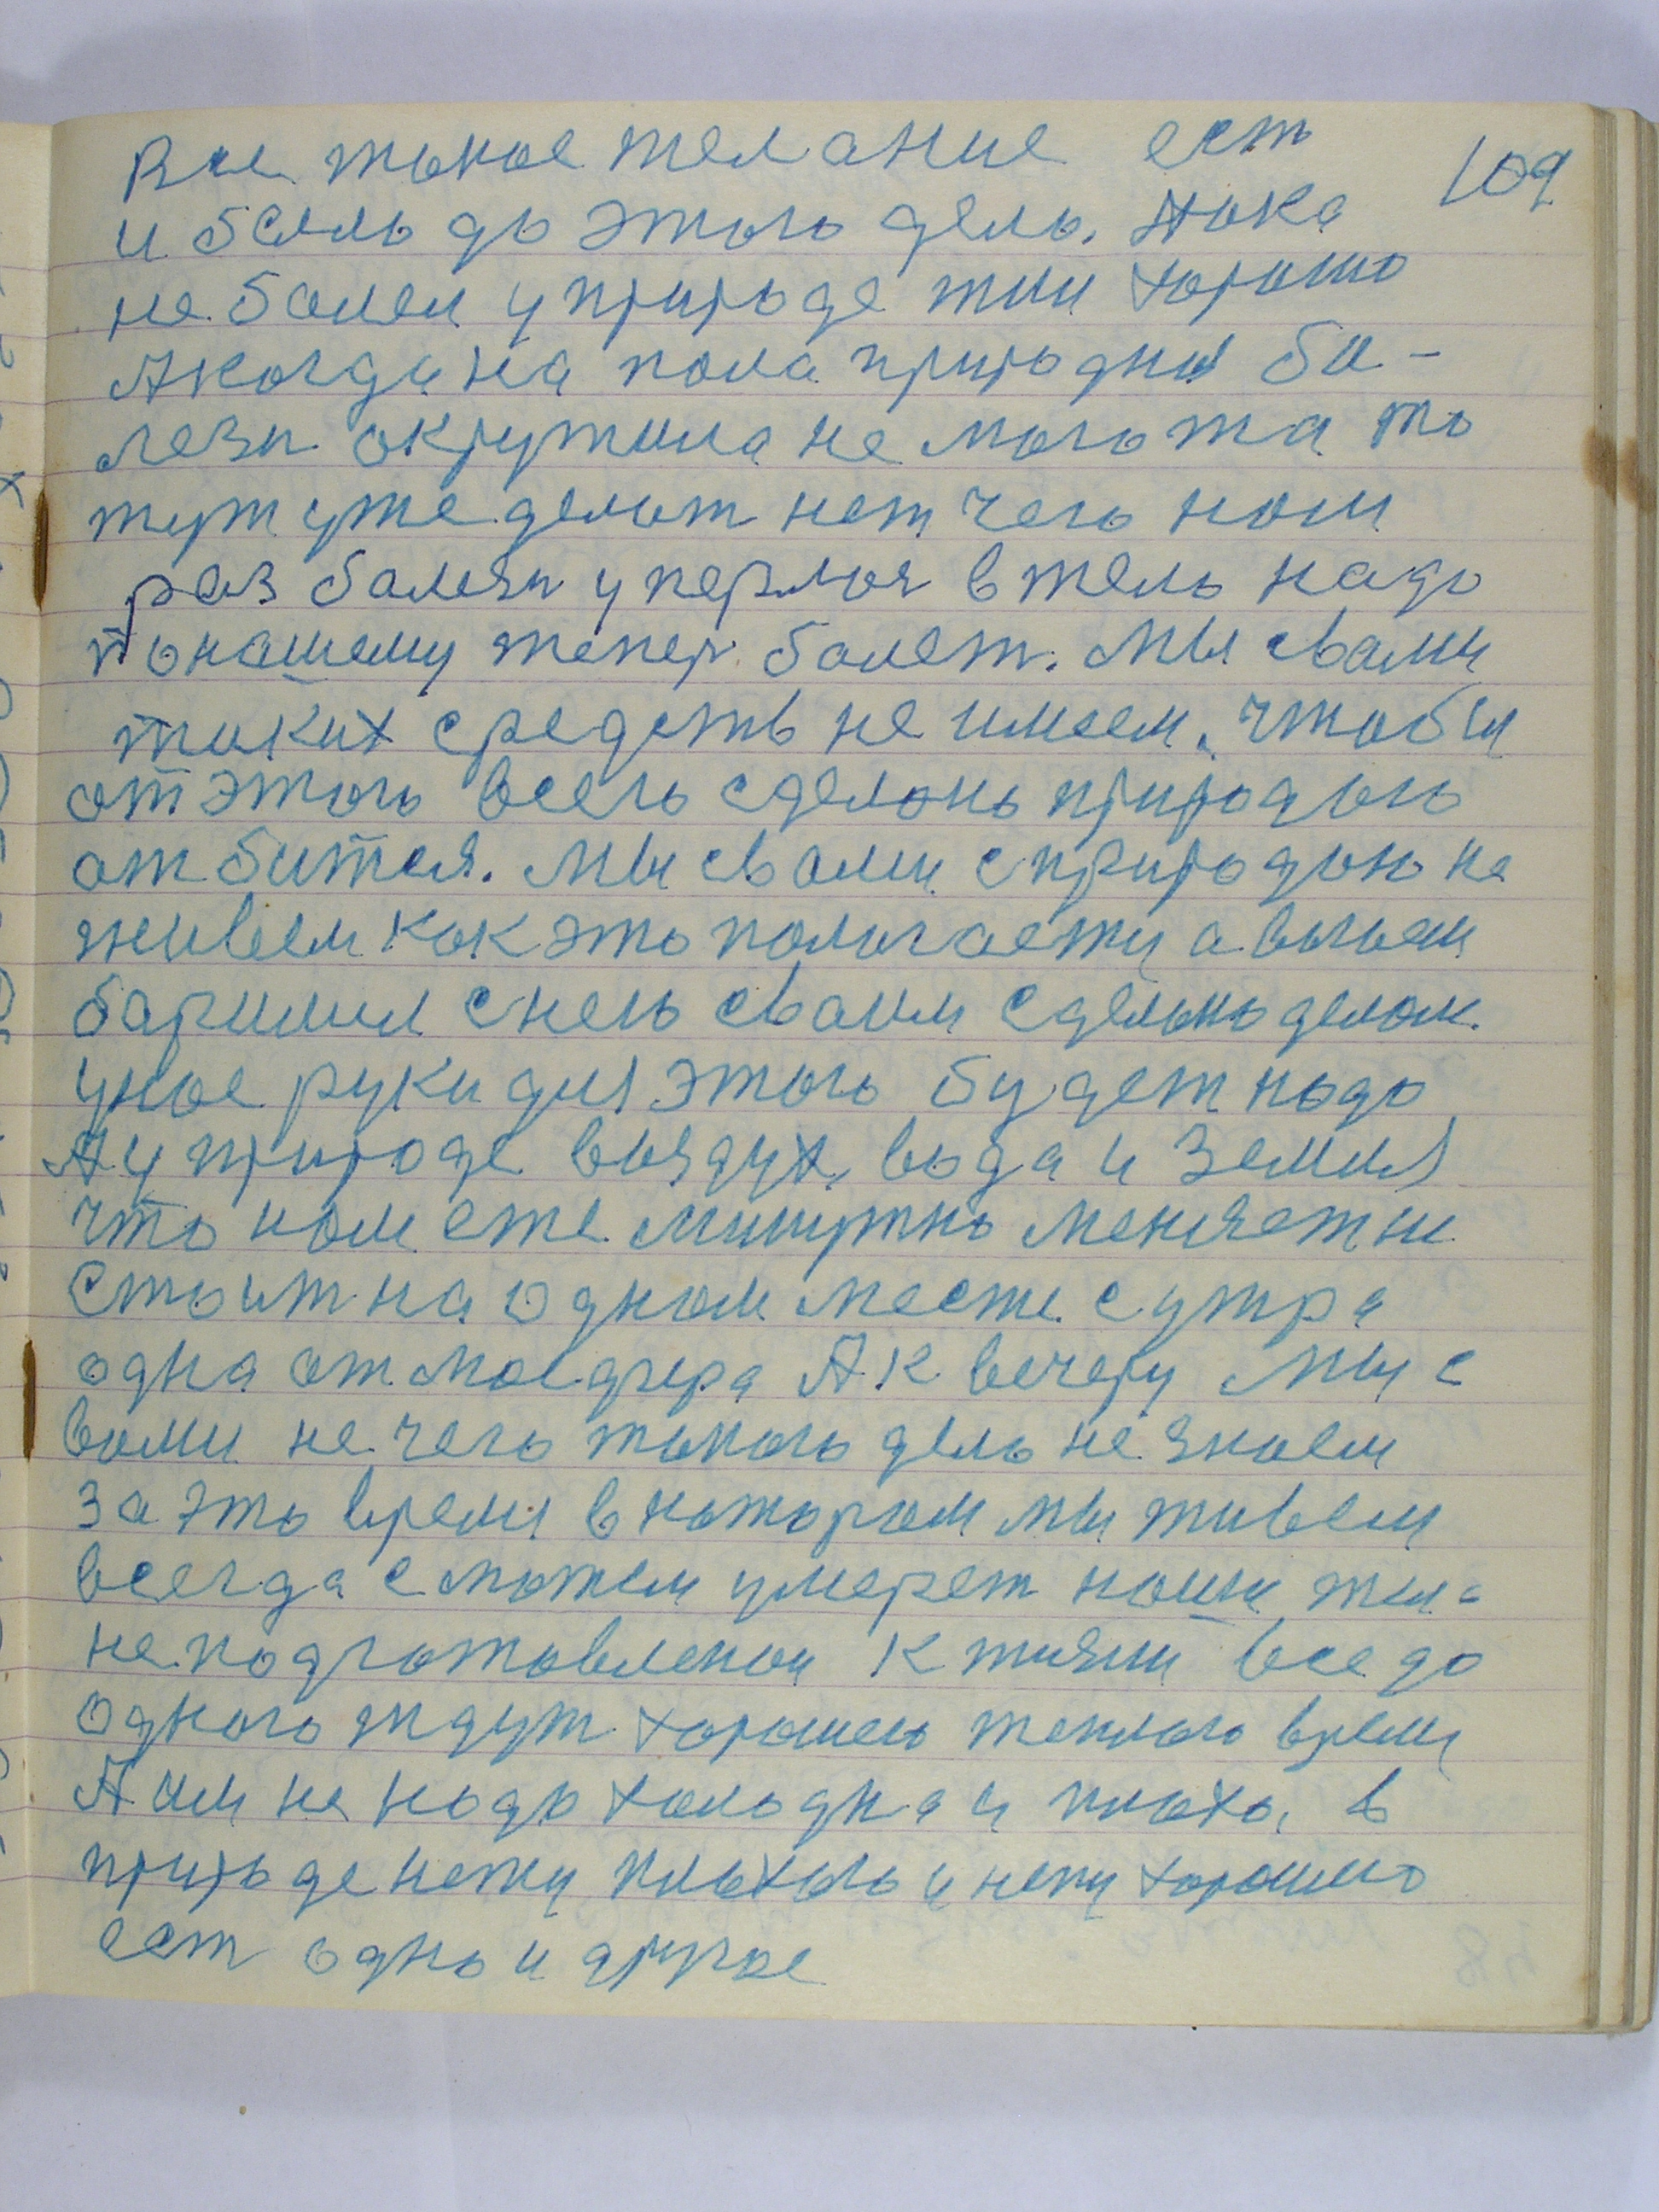 109
Все токое желание есть
и было до этого дело. пока
не болел у природе жил хорошо
А когда на пола природны бо-
лезн окружила не мого жа то
тут уже делат нет чего ном
раз болезн уперлоя в тело надо
понашему тепер болет. Мы свами
таких средств не имеем. чтобы
от этого всего сделоно природою
отбится. Мы свами с природою не
живем как это пологаетц а
с нею своим сделоно делом.
уное руки для этого будет нодо
А у природе воздух, вода и Земля
что ном еже минутно меняетци
Стоит на одном месте с утра
одна отмосфера А к вечеру мы с
вами не чего токого дело не знаем
За это время в котором мы живем
всегда сможем умерет ноши тела
не подготовленои к жизни все до
одного ждут хорошего теплого время
А им не нодо холодна и плохо, в
природе нету плохого и нету хорошего
ест одно и другое